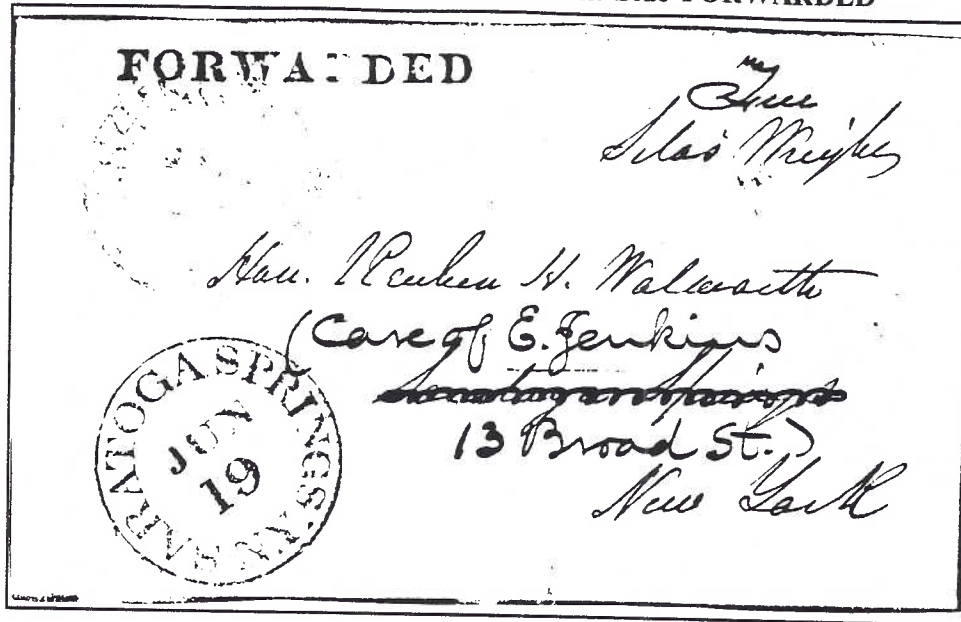 FORWARDED
FORWARDED
Free
Silas Wright
Hon. Reuben H. Walworth
(Care of E. Jenkins
Saratoga Springs
13 Broad St.)
New York
SARATOGA SPRINGS N.Y.
JUN
19